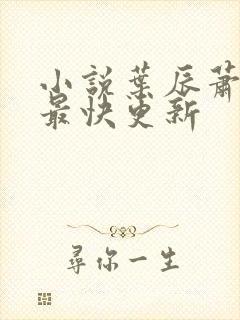 小說葉辰蕭
最快更新
尋你一生